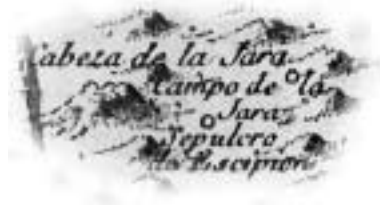 Cabeza de la Jara
Campo de la
Jara
Sepulcro
de Escipion